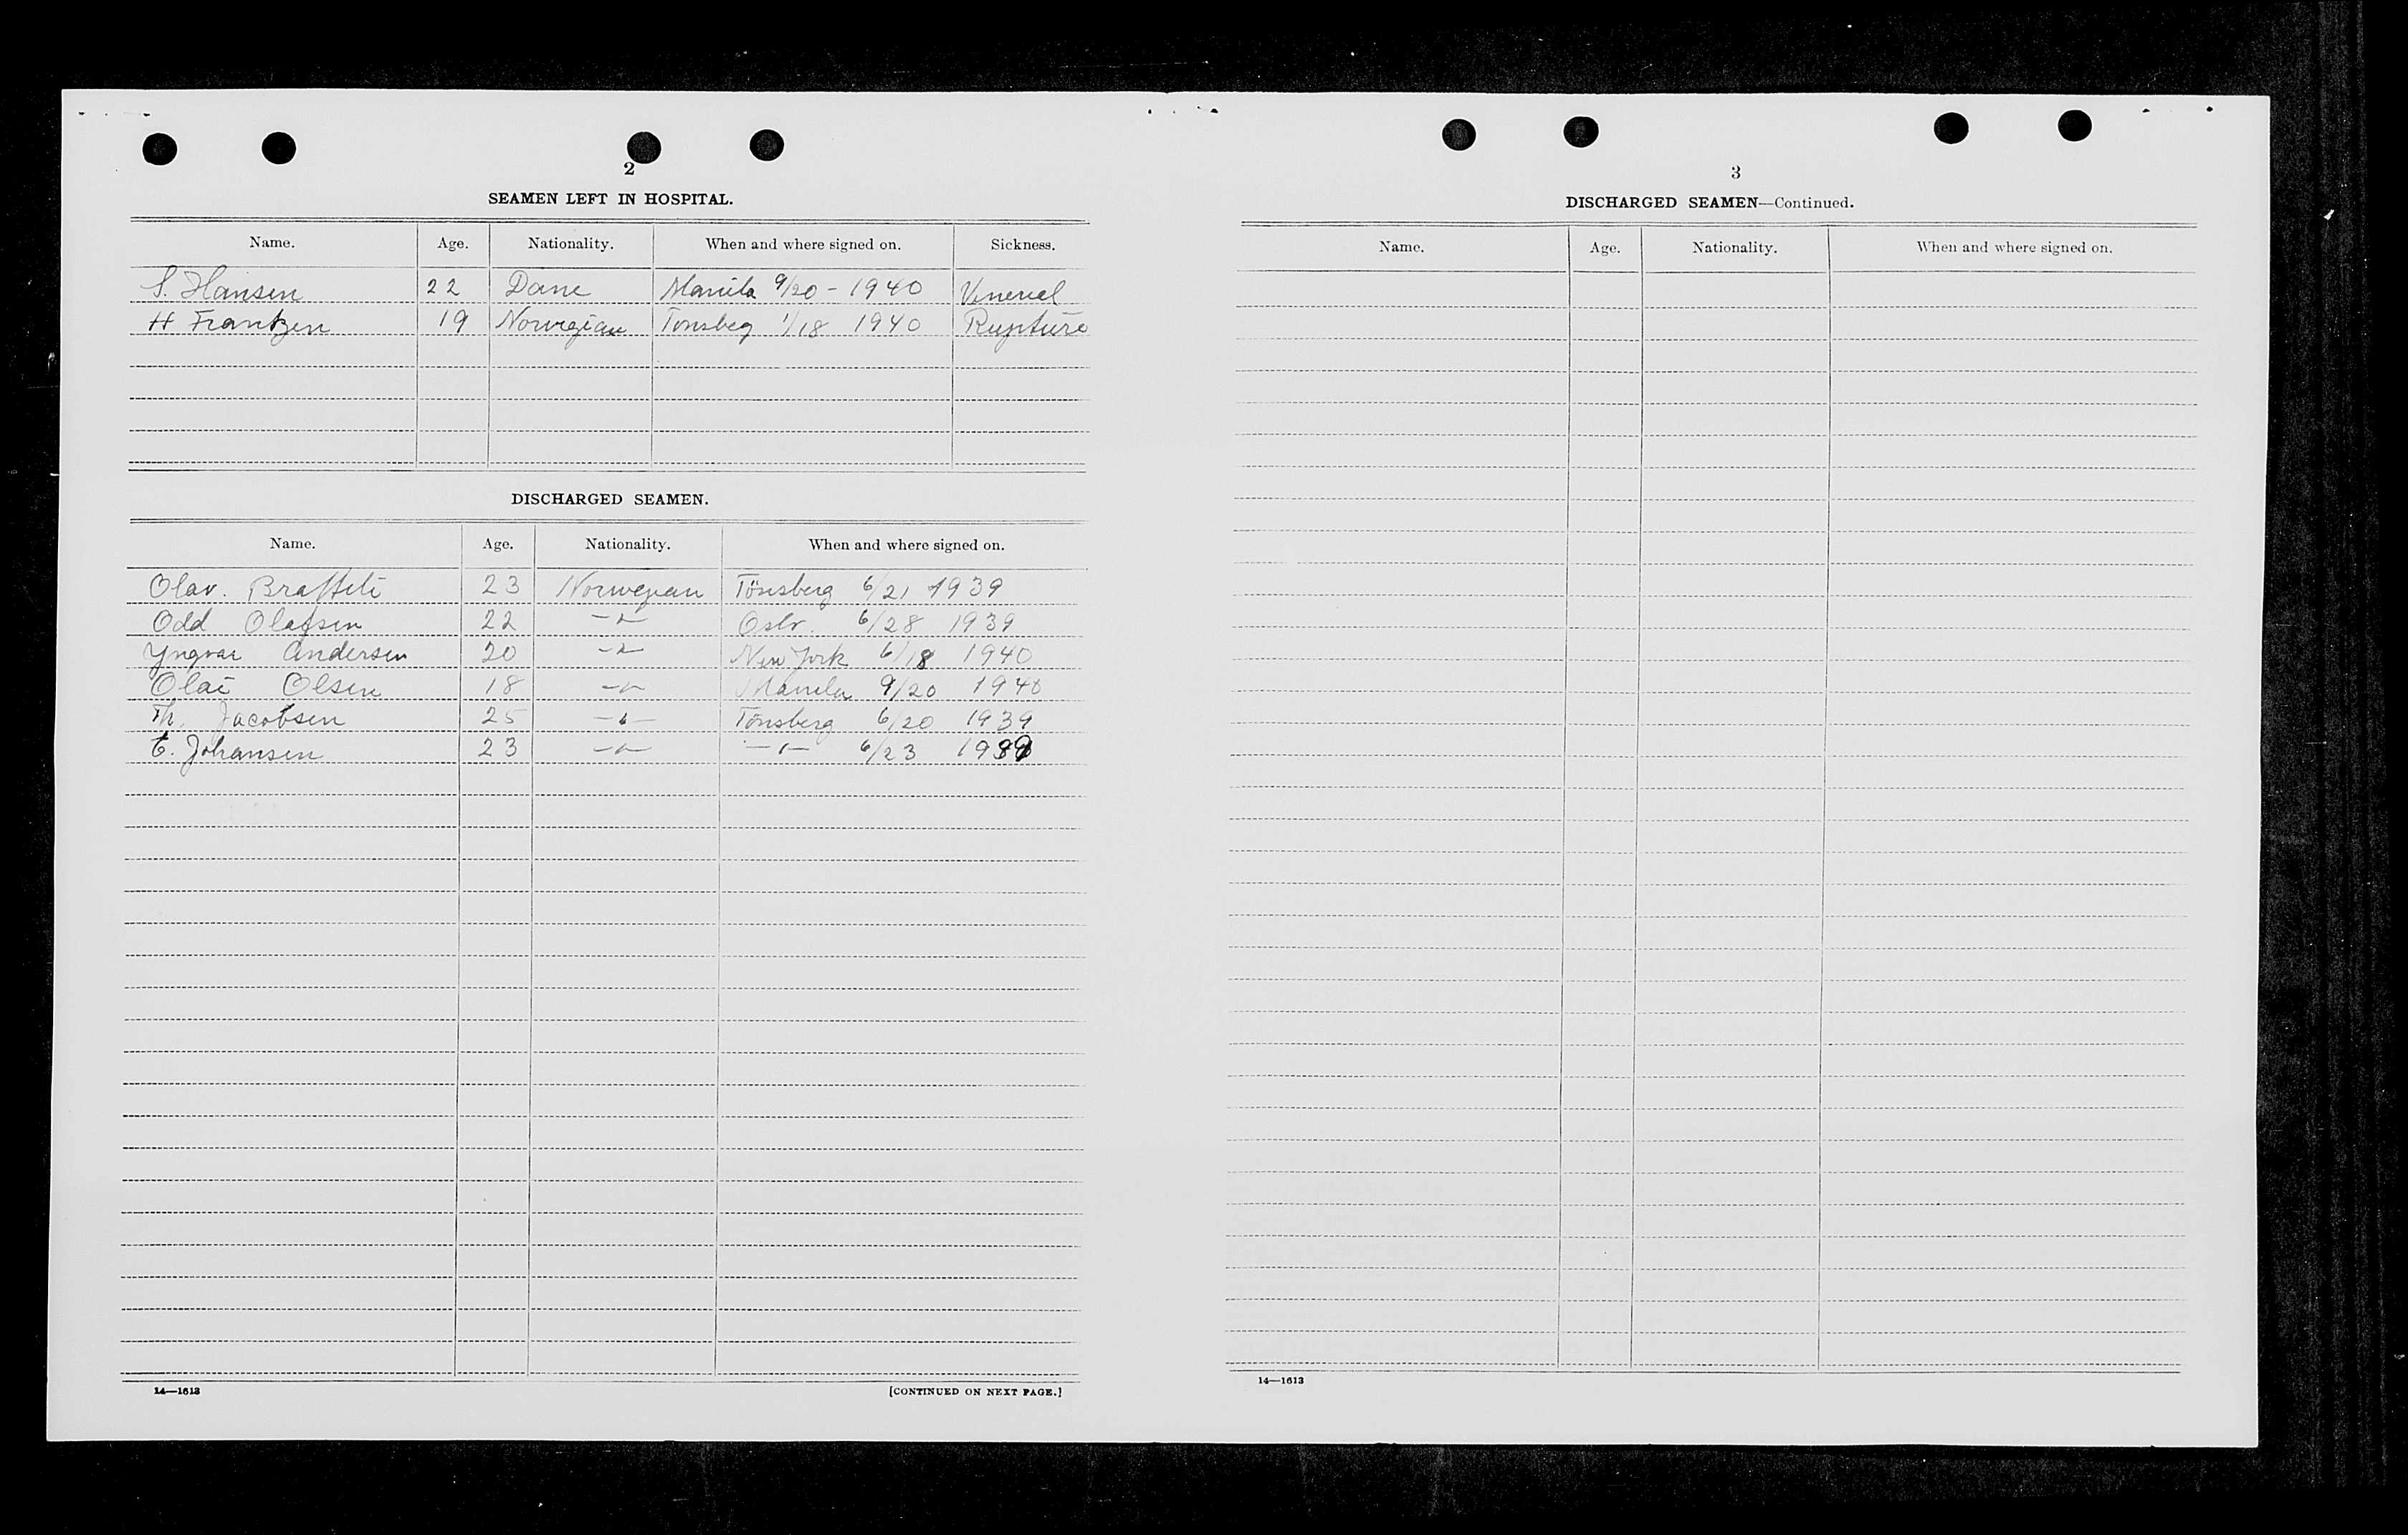 2
SEAMEN LEFT IN HOSPITAL.
Name. Age. Nationality. When and where signed on. Sickness.
S. Hansen 22 Dane Manila 9/20 - 1940 Venereal
H Frantzen 19 Norwegian Tonsbeg 1/18 1940 Rupture
DISCHARGED SEAMEN.
Name. Age. Nationality. When and where signed on.
Olav. 23 Norwegian Tönsberg 6/21 1939
Odd Olafsen 22 -"- Oslo. 6/28 1939
Yngvar Andersen 20 -"- New York 6/18 1940
Olai Olsen 18 -"- Manila 9/20 1940
Th. Jacobsen 25 -"- Tönsberg 6/20 1939
E. Johansen 23 -"- -"- 6/23 1939
14—1613
[CONTINUED ON NEXT PAGE.]
3
DISCHARGED SEAMEN—Continued.
Name. Age. Nationality. When and where signed on.
14—1613